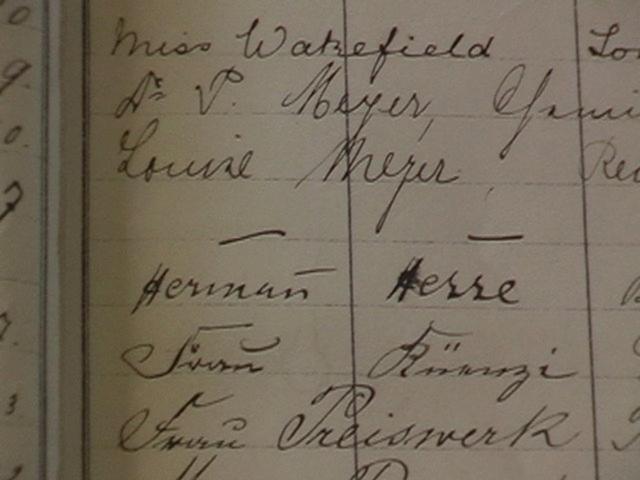 Miss Wakefield
Dr. P. Meyer,
Louise Meyer
Herman Hesse
Frau Küenzi
Frau Preiswerk